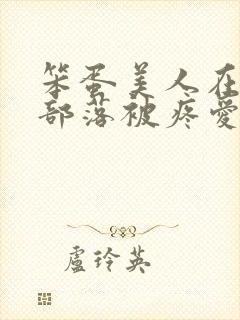 笨蛋美人在
部落被疼愛
盧玲英